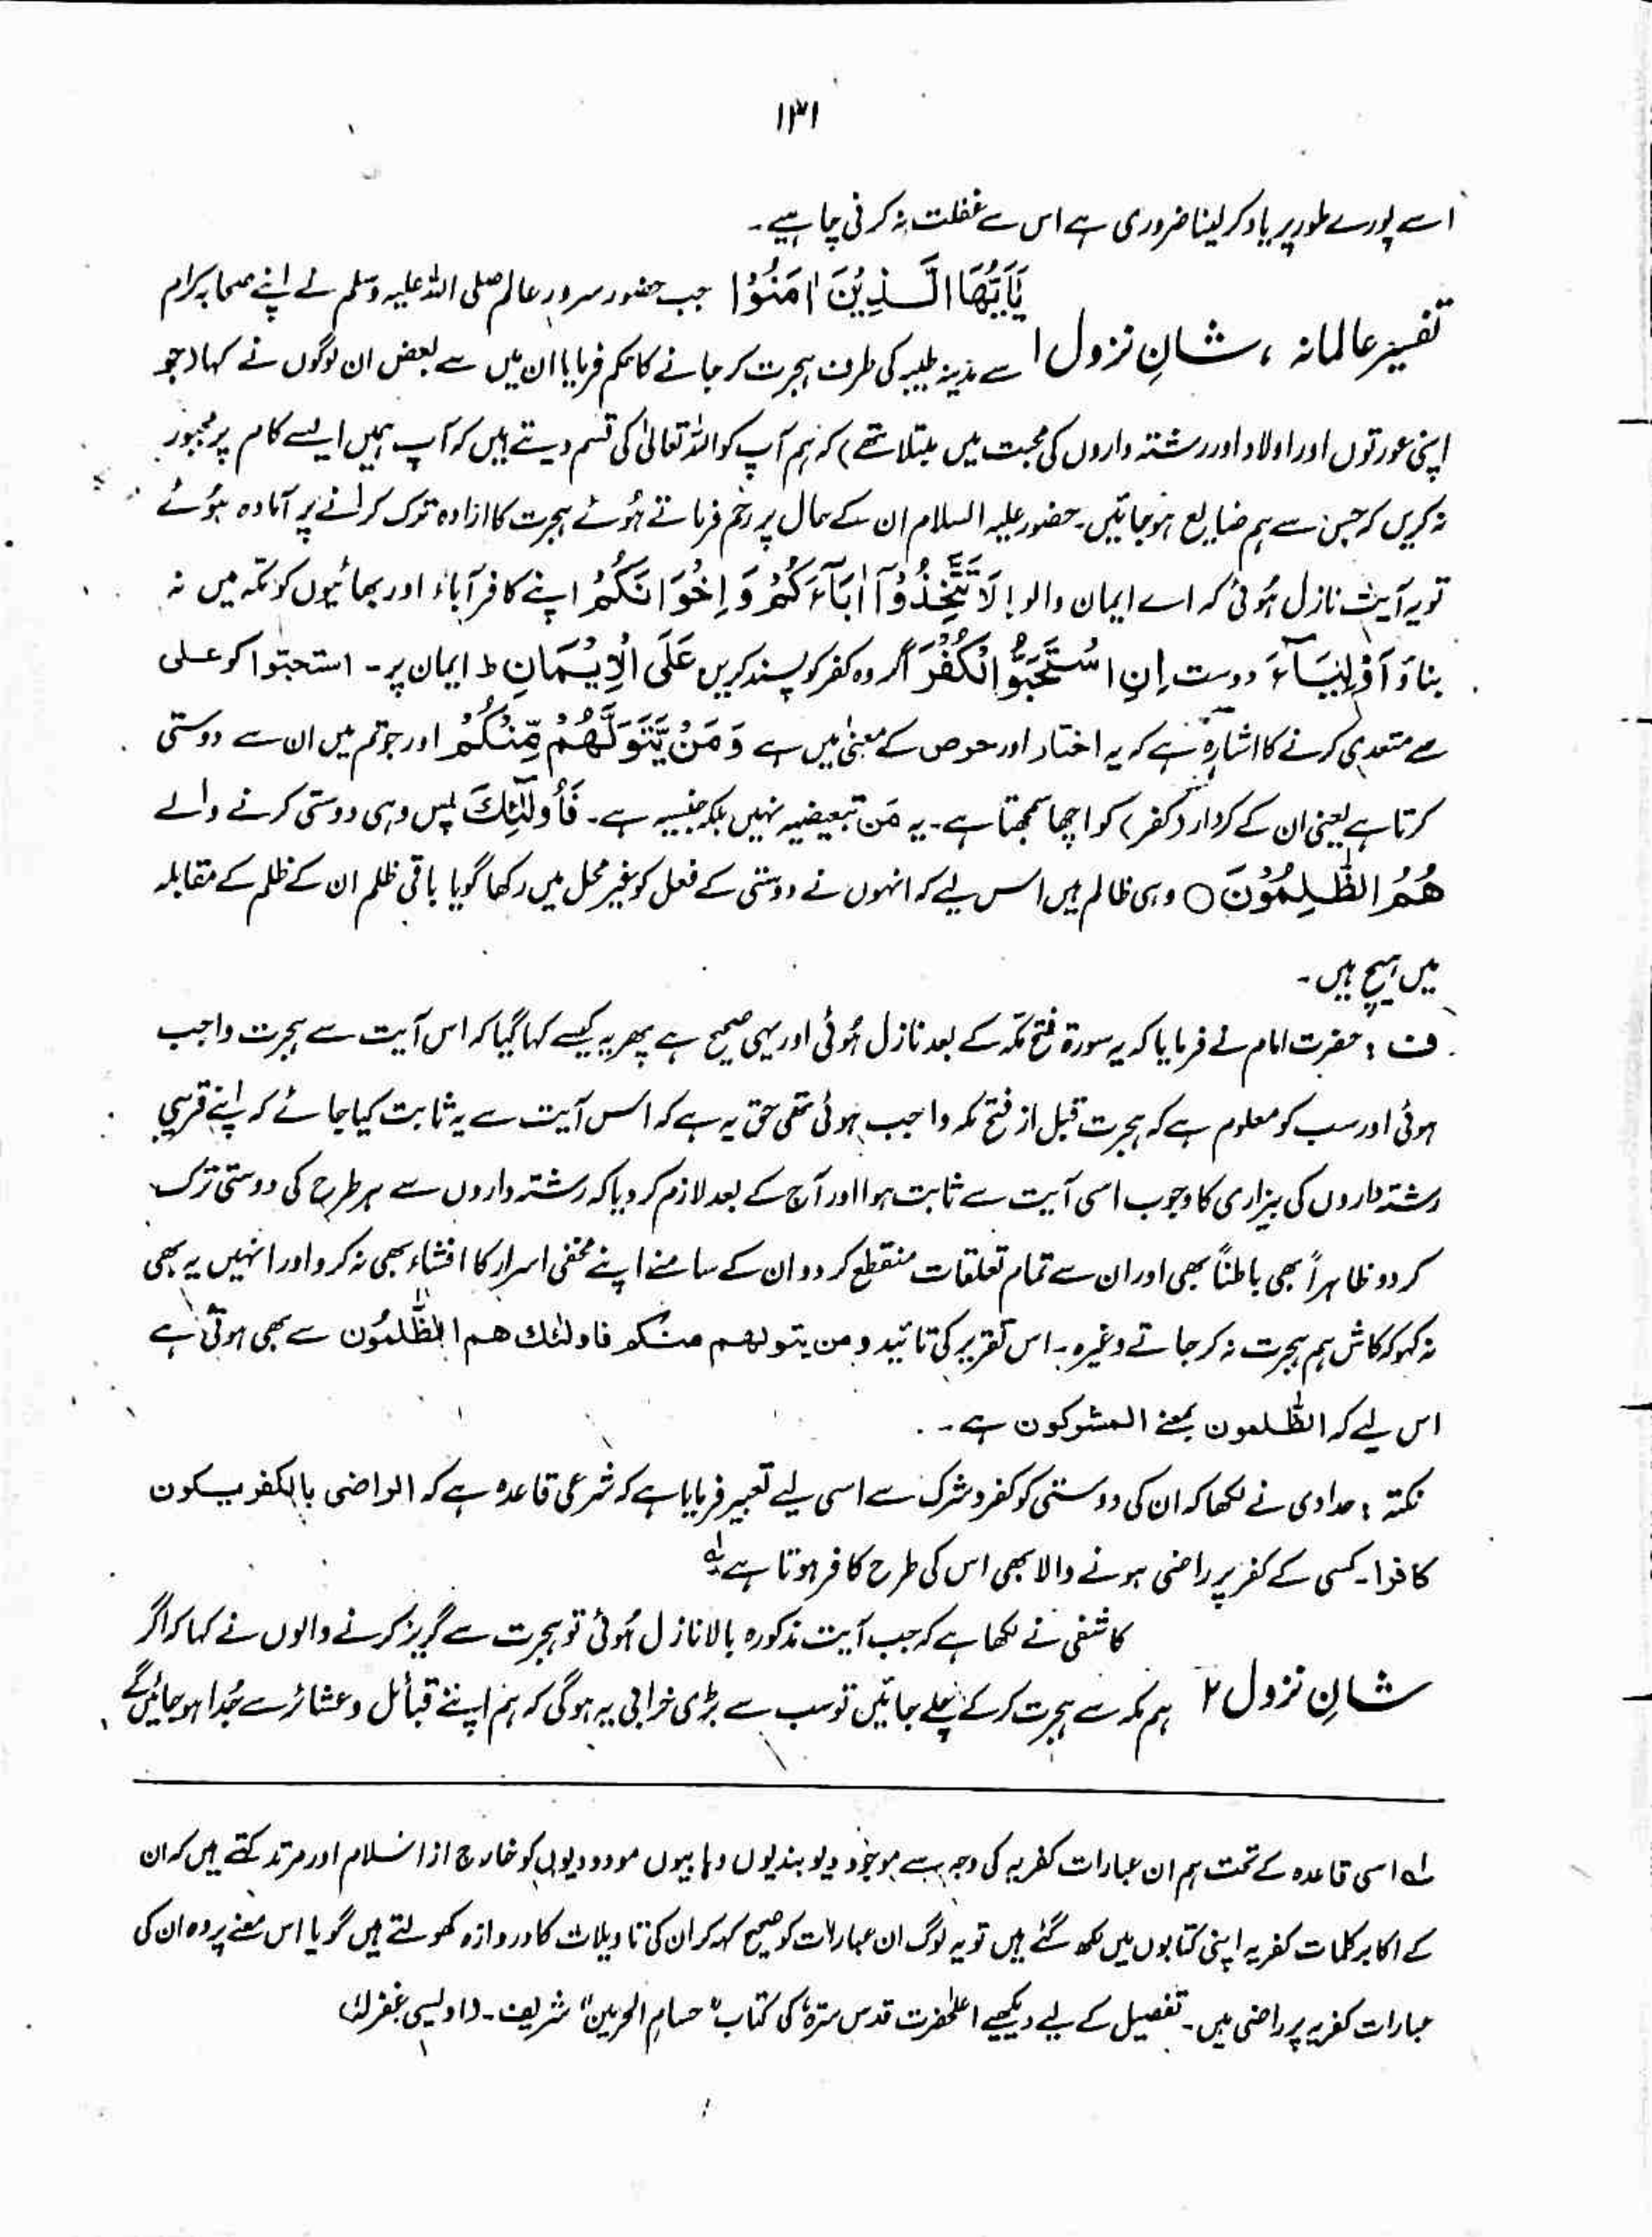 ۱۳۱
اسے پورے طور پر یاد کر لینا ضروری ہے اس سے غفلت نہ کرنی چاہیے۔
یٰۤاَیُّهَا الَّذِیْنَ اٰمَنُوْا جب حضور سرورِ عالم صلی اللہ علیہ وسلم نے اپنے صحابہ کرام
تفسیر عالمانہ ، شانِ نزول ۱ سے مدینہ طیبہ کی طرف ہجرت کر جانے کا حکم فرمایا ان میں سے بعض ان لوگوں نے کہا (جو
اپنی عورتوں اور اولاد اور رشتہ داروں کی محبت میں مبتلا تھے) کہ ہم آپ کو اللہ تعالیٰ کی قسم دیتے ہیں کہ آپ ہمیں ایسے کام پر مجبور
نہ کریں کہ جس سے ہم ضایع ہو جائیں۔ حضور علیہ السلام ان کے حال پر رحم فرماتے ہُوئے ہجرت کا ارادہ ترک کرانے پر آمادہ ہُوئے
تو یہ آیت نازل ہُوئی کہ اے ایمان والو! لَا تَتَّخِذُوْۤا اٰبَآءَكُمْ وَ اِخْوَانَكُمْ اپنے کافر آباء اور بھائیوں کو مکّہ میں نہ
بناؤ اَوْلِیَآءَ دوست اِنِ اسْتَحَبُّوا الْكُفْرَ اگر وہ کفر کو پسند کریں عَلَى الْاِیْمَانِ ط ایمان پر۔ استحبّوا کو علی
سے متعدی کرنے کا اشارہ ہے کہ یہ اختار اور حرص کے معنیٰ میں ہے وَ مَنْ یَّتَوَلَّهُمْ مِّنْكُمْ اور جو تم میں ان سے دوستی
کرتا ہے یعنی ان کے کردار (کفر) کو اچھا سمجھتا ہے۔ یہ مَن تبعیضیہ نہیں بلکہ جنسیہ ہے۔ فَاُولٰٓئِكَ پس وہی دوستی کرنے والے
هُمُ الظّٰلِمُوْنَ ○ وہی ظالم ہیں اس لیے کہ انہوں نے دوستی کے فعل کو غیر محل میں رکھا گویا باقی ظلم ان کے ظلم کے مقابلہ
میں ہیچ ہیں۔
ف : حضرت امام نے فرمایا کہ یہ سورۃ فتح مکّہ کے بعد نازل ہُوئی اور یہی صحیح ہے پھر یہ کیسے کہا گیا کہ اس آیت سے ہجرت واجب
ہوئی اور سب کو معلوم ہے کہ ہجرت قبل از فتح مکہ واجب ہوئی تھی حق یہ ہے کہ اس آیت سے یہ ثابت کیا جائے کہ اپنے قریبی
رشتہ داروں کی بیزاری کا وجوب اسی آیت سے ثابت ہوا اور آج کے بعد لازم کر دیا کہ رشتہ داروں سے ہر طرح کی دوستی ترک
کر دو ظاہراً بھی باطناً بھی اور ان سے تمام تعلقات منقطع کر دو ان کے سامنے اپنے مخفی اسرار کا افشاء بھی نہ کرو اور انہیں یہ بھی
نہ کہو کہ کاش ہم ہجرت نہ کر جاتے وغیرہ۔ اس تقریر کی تائید ومن یتولھم منکم فاولٰئک ھم الظّٰلمُون سے بھی ہوتی ہے
اس لیے کہ الظّٰلمون بمعنے المشرکون ہے۔
نکتہ : حدادی نے لکھا کہ ان کی دوستی کو کفر و شرک سے اسی لیے تعبیر فرمایا ہے کہ شرعی قاعدہ ہے کہ الراضی بالکفر یکون
کافرا۔ کسی کے کفر پر راضی ہونے والا بھی اس کی طرح کافر ہوتا ہے لہ
کاشفی نے لکھا ہے کہ جب آیت مذکورہ بالا نازل ہُوئی تو ہجرت سے گریز کرنے والوں نے کہا کہ اگر
شانِ نزول ۲ ہم مکہ سے ہجرت کر کے چلے جائیں تو سب سے بڑی خرابی یہ ہوگی کہ ہم اپنے قبائل و عشائر سے جُدا ہو جائیں گے
لہ اسی قاعدہ کے تحت ہم ان عبارات کفریہ کی وجہ سے موجود دیوبندیوں وہابیوں مودودیوں کو خارج از اسلام اور مرتد کہتے ہیں کہ ان
کے اکابر کلمات کفریہ اپنی کتابوں میں لکھ گئے ہیں تو یہ لوگ ان عبارات کو صحیح کہہ کر ان کی تاویلات کا دروازہ کھولتے ہیں گویا اس معنے پر وہ ان کی
عبارات کفریہ پر راضی ہیں۔ تفصیل کے لیے دیکھیے اعلٰحضرت قدس سترہٗ کی کتاب "حسام الحرمین" شریف۔ (اویسی غفرلہٗ)